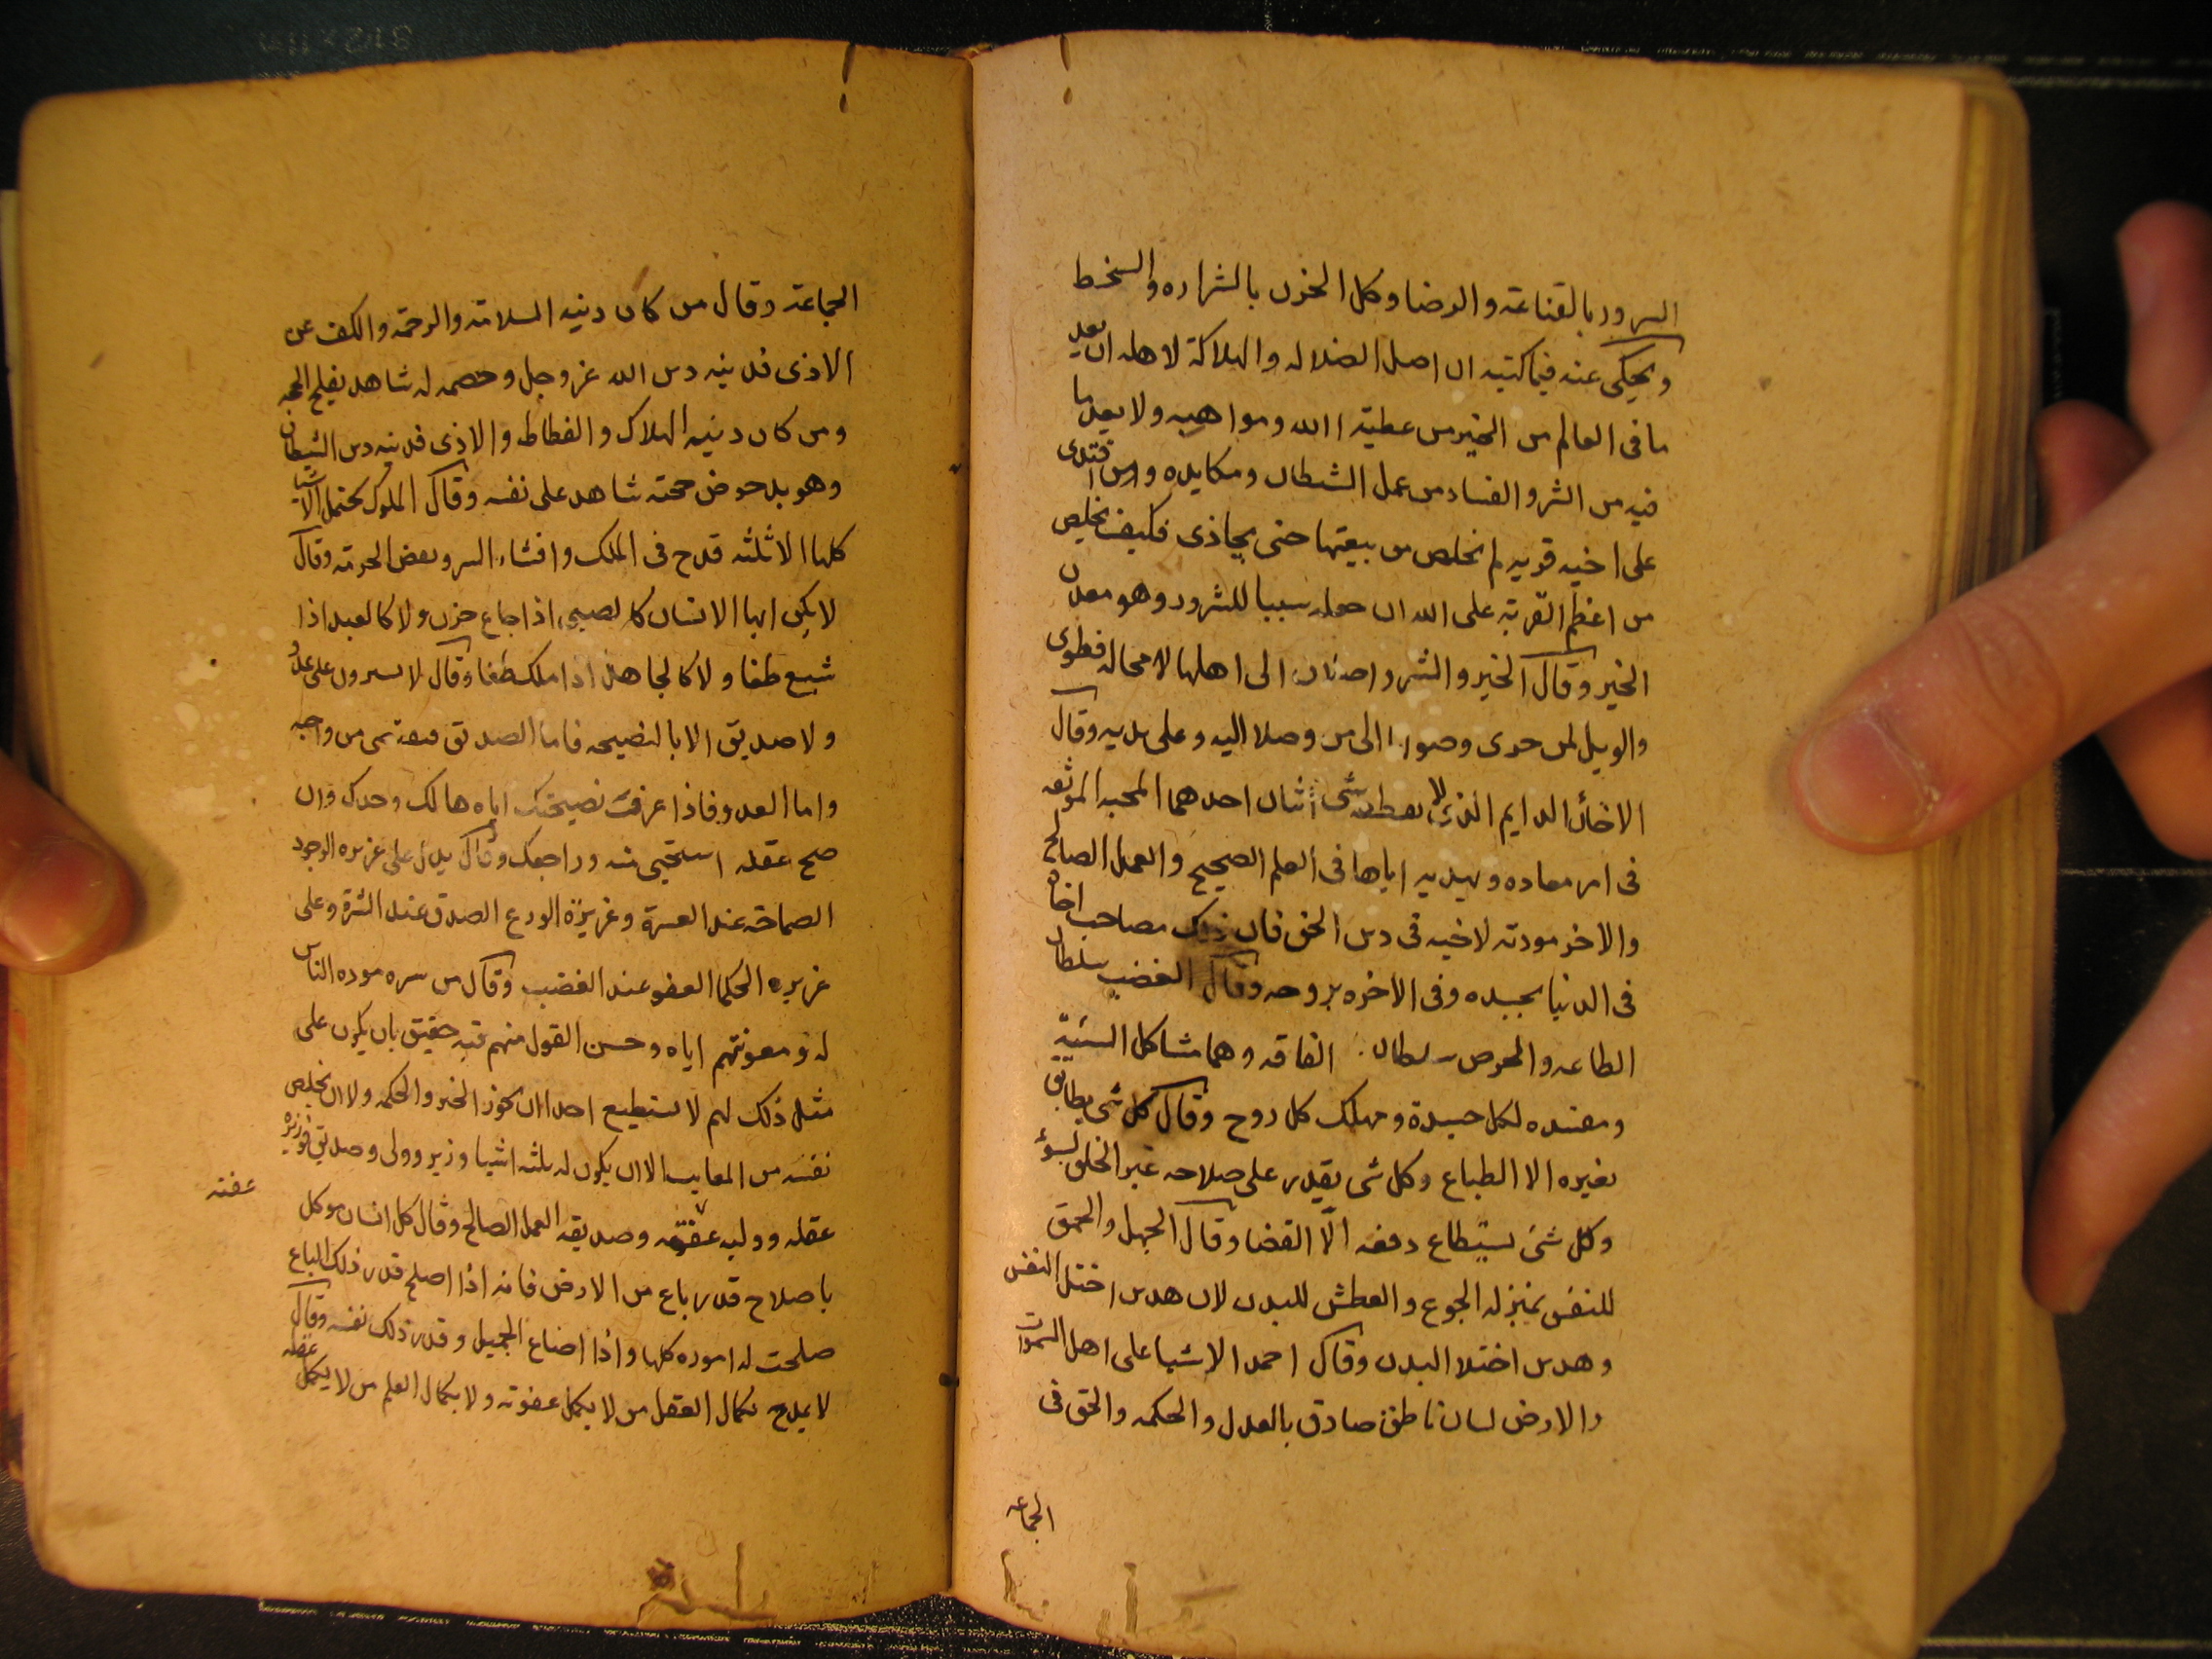 السرور بالقناعة والرضا وكل الحزن بالشراره والسخط
ويحكى عنه فيما كتبه ان اصل الضلاله والهلاكة لاهله ان يعد
ما فى العالم من الخير من عطية الله ومواهبه ولا يعد ما
فيه من الشر والفساد من عمل الشيطان ومكايده ومن افترى
على اخيه فريه لم يخلص من بيعتها حتى يجاذى فكيف يخلص
من اعظم الفرية على الله ان جعله سببا للشرور وهو معدن
الخير وقال الخير والشر واصلان الى اهلها لا محاله فطوبى
والويل لمن جرى وصول الى من وصلا اليه وعلى يديه وقال
الاخأ الدايم الذى لا يقطعه شى اثنان احدهما المحبه المرء نفسه
فى امر معاده وتهذيبه اياها فى العلم الصحيح والعمل الصالح
والاخر مودته لاخيه فى دين الحق فان ذلك مصاحب اخاه
فى الدنيا بجسده وفى الاخره بروحه وقال الغضب سلطان
الطاعه والحرص سلطان الفاقه وهما مشاكل السئية
ومفسده لكل جسدة ومهلك كل روح وقال كل شى يطابق
تغيره الا الطباع وكل شى يقدر على صلاحه غير الخلق السوء
وكل شئ يستطاع دفعه الّا القضا وقال الجهل والحمق
للنفس بمنزله الجوع والعطش للبدن لان هذين اختل النفس
وهذين اختلا البدن وقال احمد الاشيا على اهل السموات
والارض لسان ناطق صادق بالعدل والحكمه والحق فى
الجماعه
الجماعة وقال من كان دينه السلامة والرحمة والكف عن
الاذى فدينه دين الله عز وجل وخصمه له شاهد بفلج الحجه
ومن كان دينه الهلاك والفظاظ والاذى فدينه دين الشيطان
وهو بدحوض حجته شاهد على نفسه وقال الملوك تحتمل الاشيا
كلها الا ثلثه قدح فى الملك وافشاء السر وتعرض الحرمة وقال
لا يكن ايها الانسان كالصبى اذا جاع حزن ولا كالعبد اذا
شبع طغا ولا كالجاهل اذا ملك طغا وقال لا تسيرون على عدو
ولا صديق الا بالنصيحه فاما الصديق فتقضى من واجبه
واما العدو فاذا عرفت نصيحتك اياه هالك وحدك وان
صح عقله استحيى منه وراجعك وقال يدل على غريزه الوجود
الصماحة عند العسرة وغريزة الورع الصدق عند الشرة وعلى
غريزه الحكما العفو عند الغضب وقال من سره موده الناس
له ومعونتهم اياه وحسن القول منهم فيه حقيق بان يكون على
مثل ذلك لهم لا يستطيع احد ان يحوز الخير والحكمه ولا ان يخلص
نفسه من المعايب الا ان يكون له ثلثه اشيا وزير وولى وصديق فوزيره
عقله ووليه عفته وصديقه العمل الصالح وقال كل انسان موكل
عفته
باصلاح قدر باع من الارض فانه اذا اصلح قدر ذلك الباع
صلحت له اموره كلها واذا اضاع الجميل وقدر ذلك نفسه وقال
لا يمدح بكمال العقل من لا يكمل عفوته ولا بكمال العلم من لا يكمل عقله